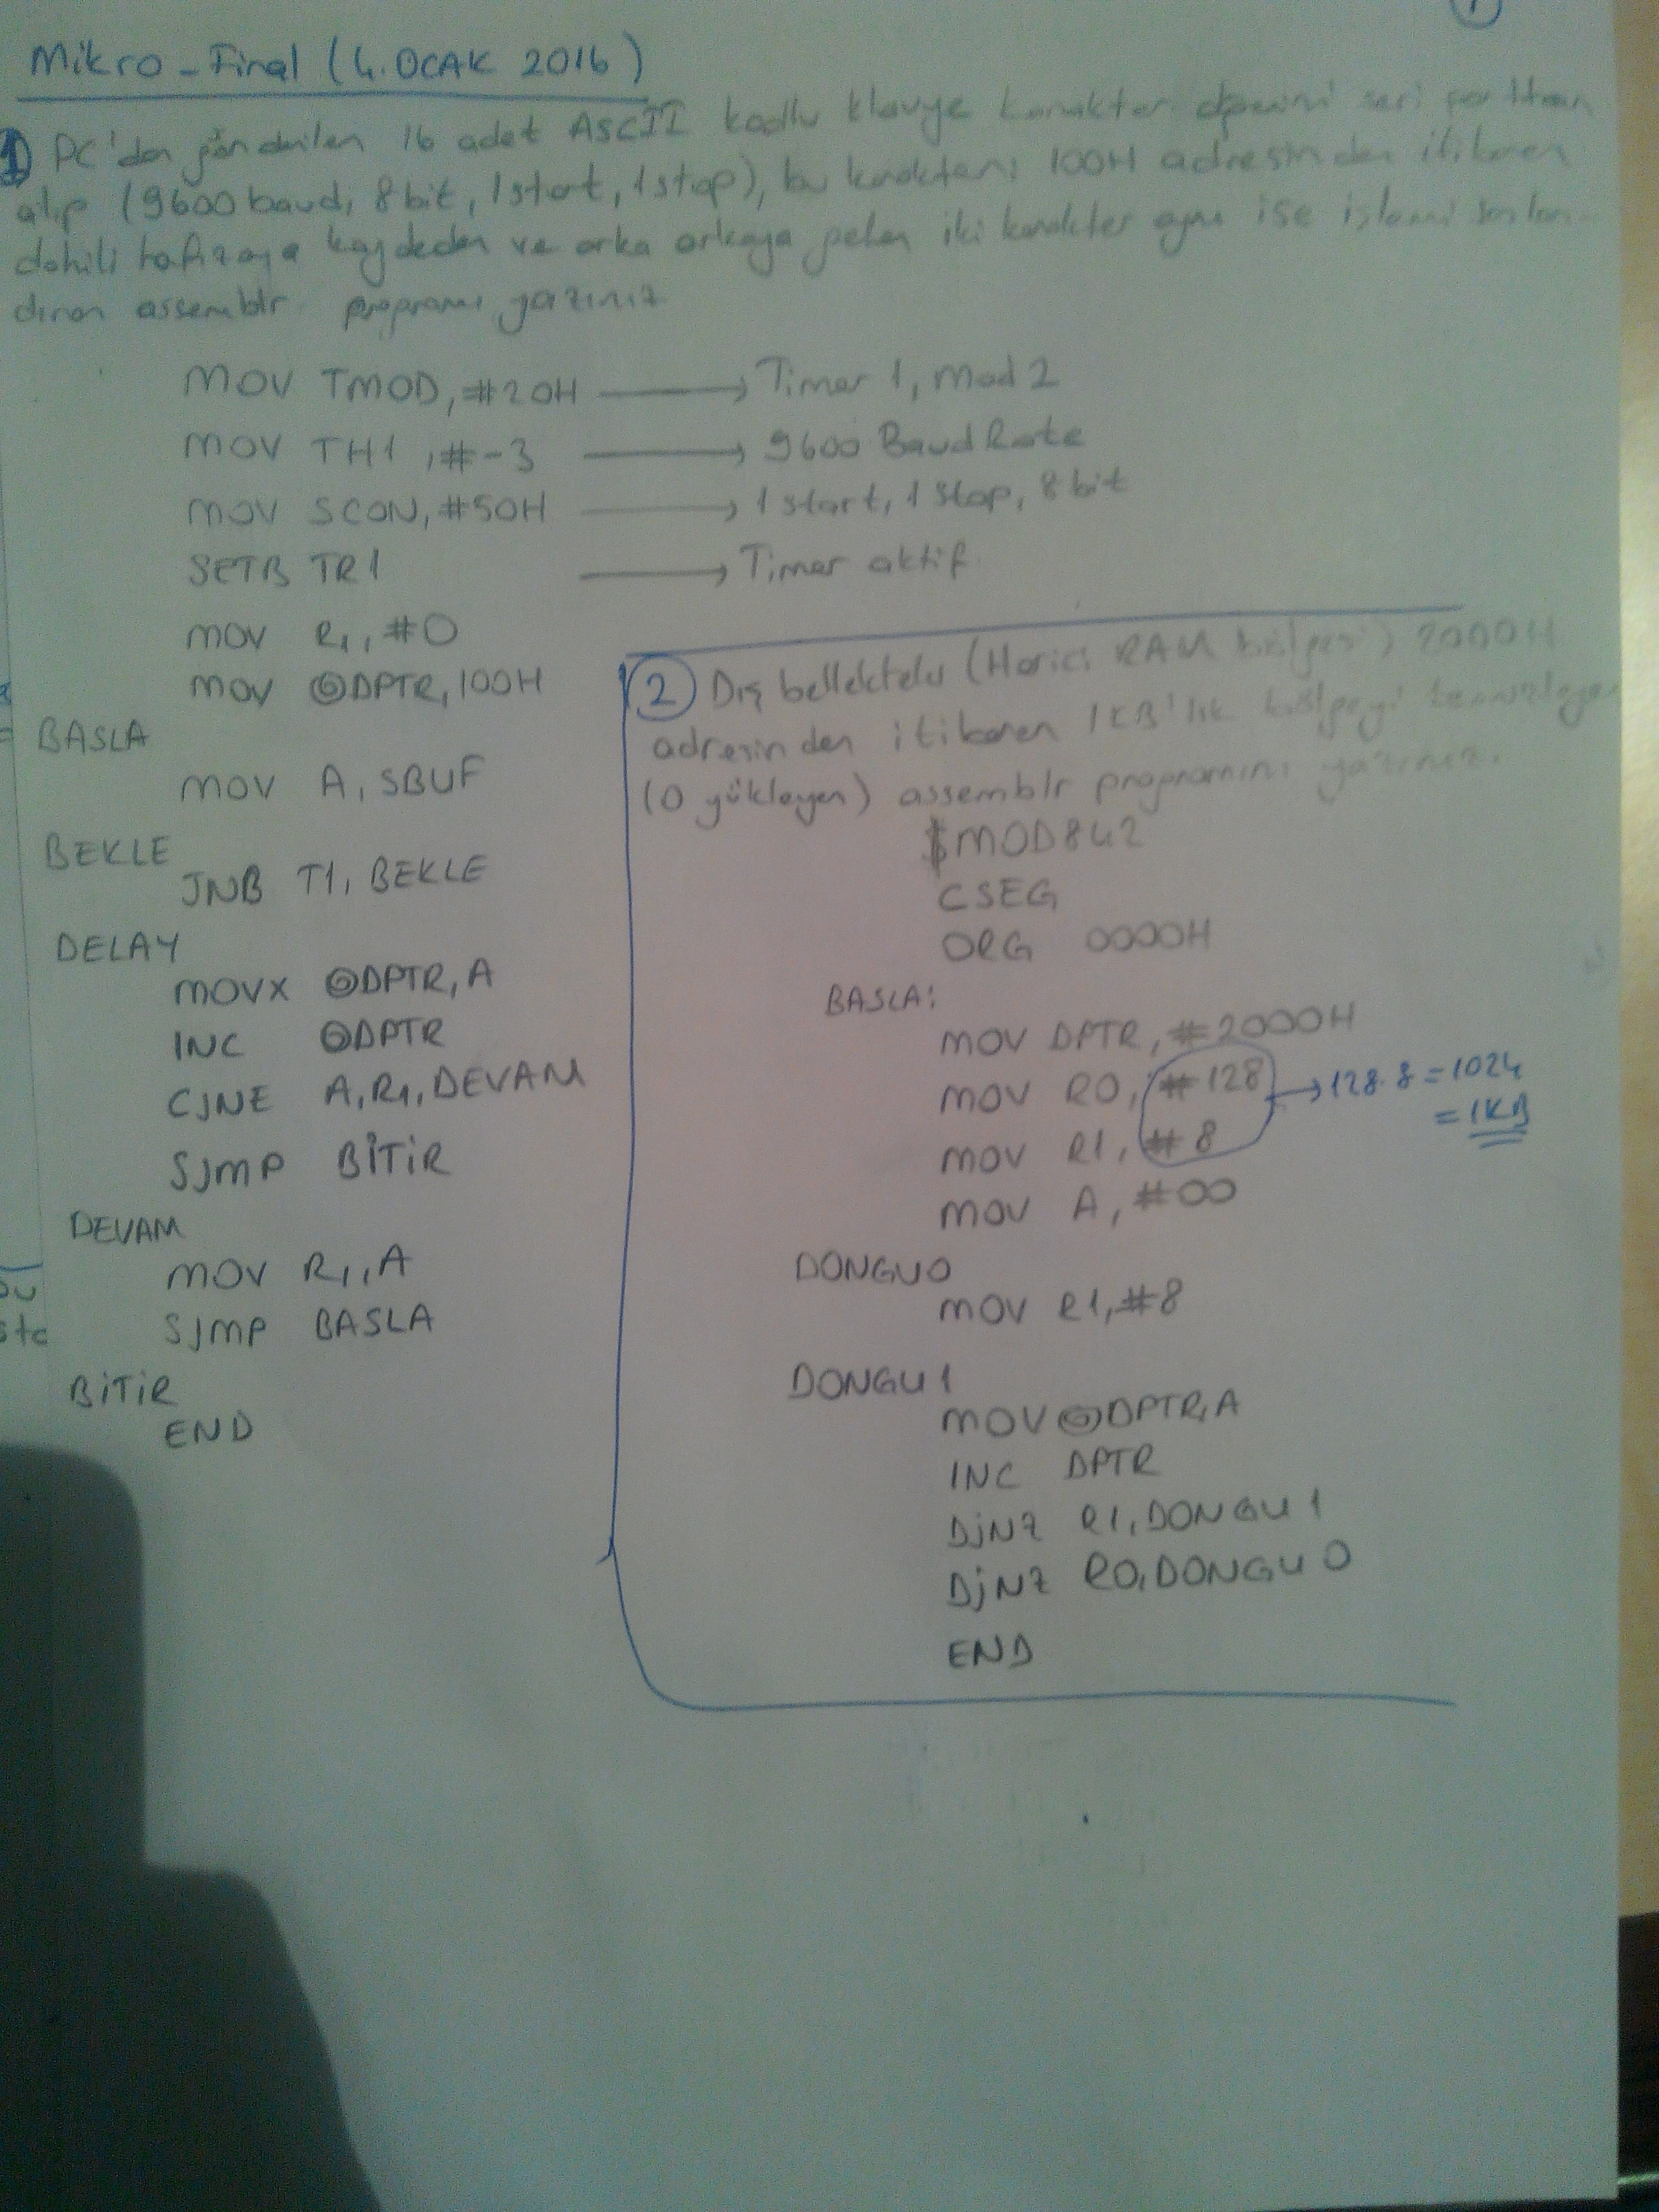 1
Mikro-Final (4.OCAK 2016)
1 PC'den gönderilen 16 adet ASCII kodlu klavye karakter seri porttan
alıp (9600 baud, 8 bit, 1 start, 1 stop), bu karakteri 100H adresinden itibaren
dahili hafızaya kaydeden ve arka arkaya gelen iki karakter aynı ise işlemi sonlan-
dıran assemblr programı yazınız
MOV TMOD,#20H → Timer 1, Mod 2
MOV TH1,#-3 → 9600 Baud Rate
MOV SCON,#50H → 1 start, 1 stop, 8 bit
SETB TR1 → Timer aktif
MOV R1,#0
MOV @DPTR,100H
BASLA
MOV A,SBUF
BEKLE
JNB T1, BEKLE
DELAY
MOVX @DPTR,A
INC @DPTR
CJNE A,R1,DEVAM
SJMP BİTİR
DEVAM
MOV R1,A
SJMP BASLA
BİTİR
END
2 Dış bellekteki (Harici RAM bölgesi) 2000H
adresinden itibaren 1KB'lık bölgeyi temizleyen
(0 yükleyen) assemblr programını yazınız.
$MOD842
CSEG
ORG 0000H
BASLA:
MOV DPTR,#2000H
MOV R0,#128 → 128.8=1024
MOV R1,#8 =1KB
MOV A,#00
DONGU0
MOV R1,#8
DONGU1
MOV @DPTR,A
INC DPTR
DJNZ R1,DONGU1
DJNZ R0,DONGU0
END
ste